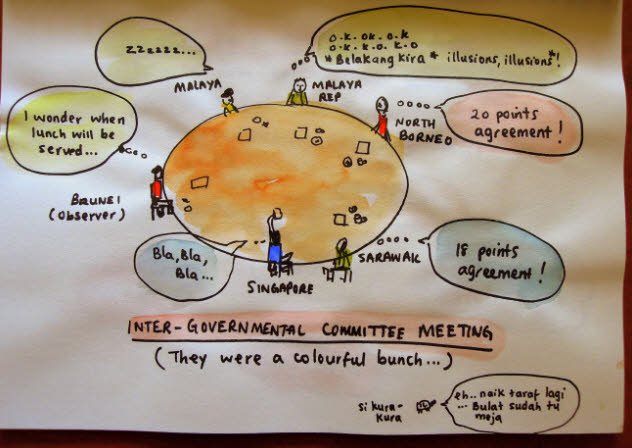 zzzzzz...
O.K. OK. O.K
O.K. K.O. K.O
*Belakang Kira* illusions, illusions*!
MALAYA
MALAYA
REP
I wonder when
lunch will be
served...
20 points
agreement!
NORTH
BORNEO
BRUNEI
(Observer)
Bla, Bla,
Bla...
SINGAPORE
SARAWAK
18 points
agreement!
INTER-GOVERNMENTAL COMMITTEE MEETING
(They were a colourful bunch...)
si kura-
kura
eh.. naik taraf lagi
... Bulat sudah tu
meja